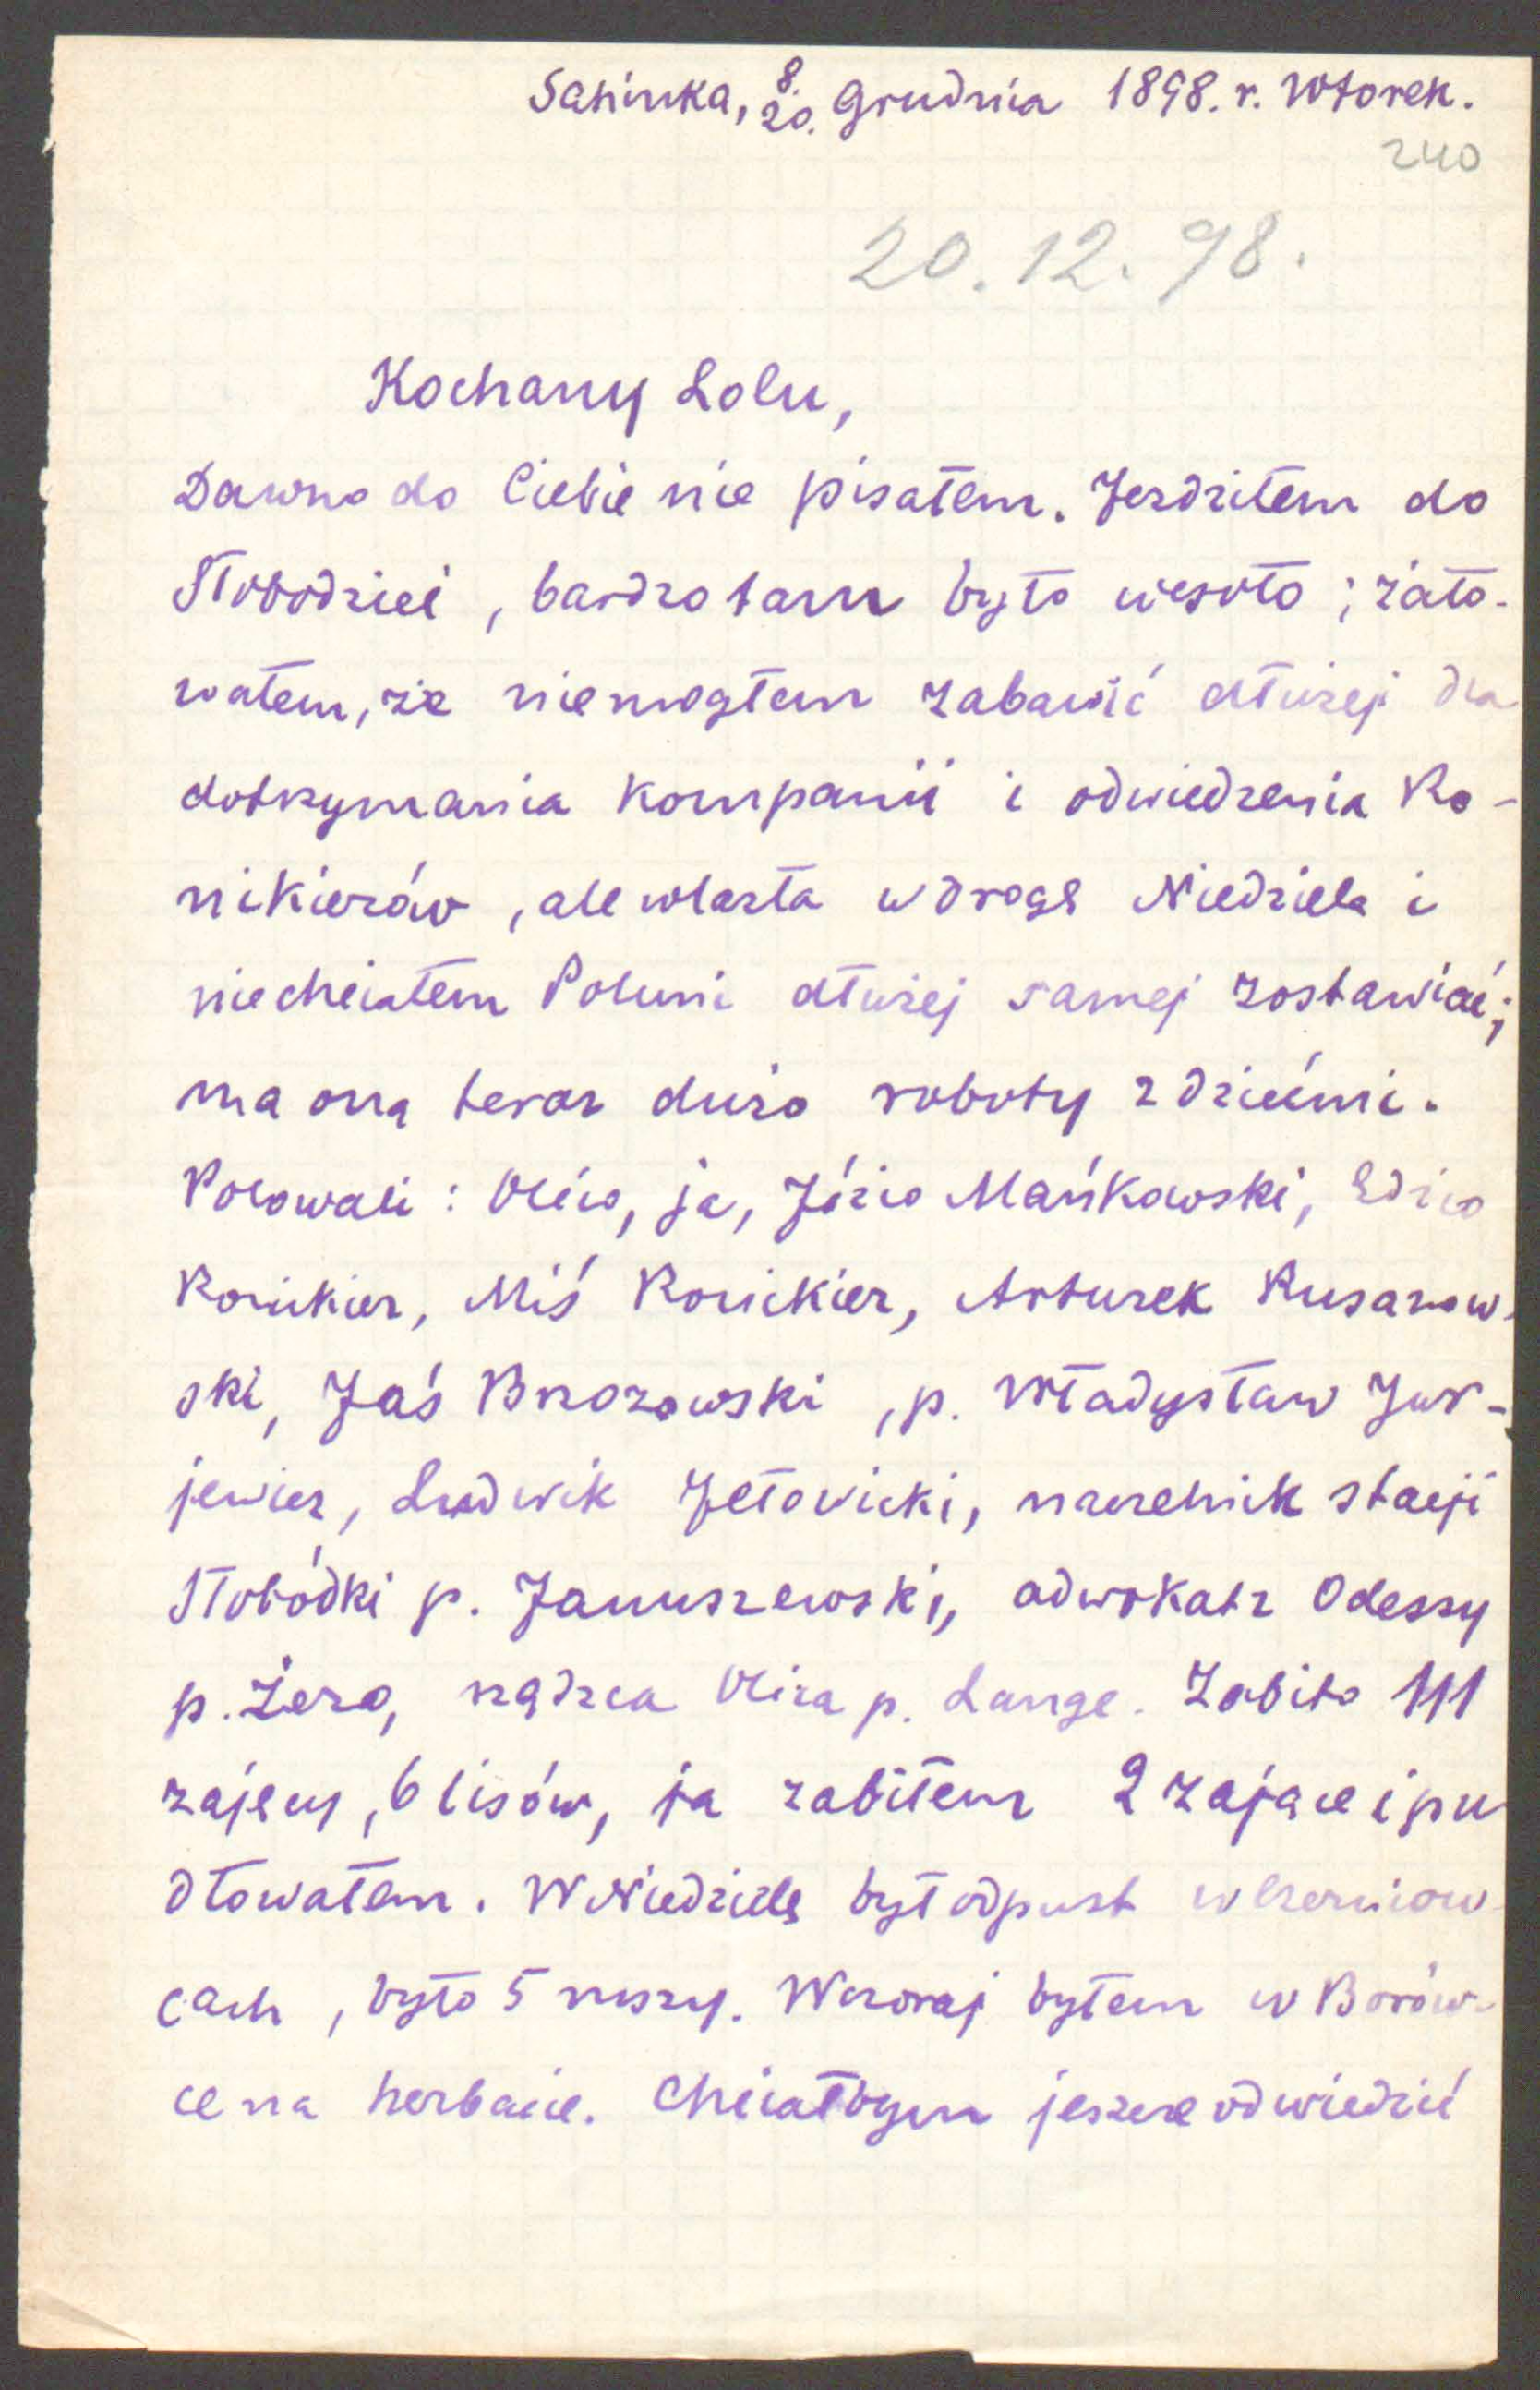 Sahinka, 8./20. Grudnia 1898. r. Wtorek.
240
20.12.98.
Kochany Lolu,
Dawno do Ciebie nie pisałem. Jeździłem do
Słobodziei, bardzo tam było wesoło; żało-
wałem, że niemogłem zabawić dłużej dla
dotrzymania kompanii i odwiedzenia Ro-
nikierów, ale wlazła w drogę Niedziela i
niechciałem Poluni dłużej samej zostawiać;
ma ona teraz dużo roboty z dziećmi.
Polowali: Olcio, ja, Józio Mańkowski, Edzio
Ronikier, Miś Ronikier, Arturek Rusanow-
ski, Jaś Brzozowski, p. Władysław Jur-
jewicz, Ludwik Jełowicki, naczelnik stacji
Słobódki p. Januszewski, adwokat z Odessy
p. Żero, rządca Olcia p. Lange. Zabito 111
zajęcy, 6 lisów, ja zabiłem 2 zające i pu
dłowałem. W Niedzielę był odpust w Czerniow-
cach, było 5 mszy. Wczoraj byłem w Borów-
ce na herbacie. Chciałbym jeszcze odwiedzić